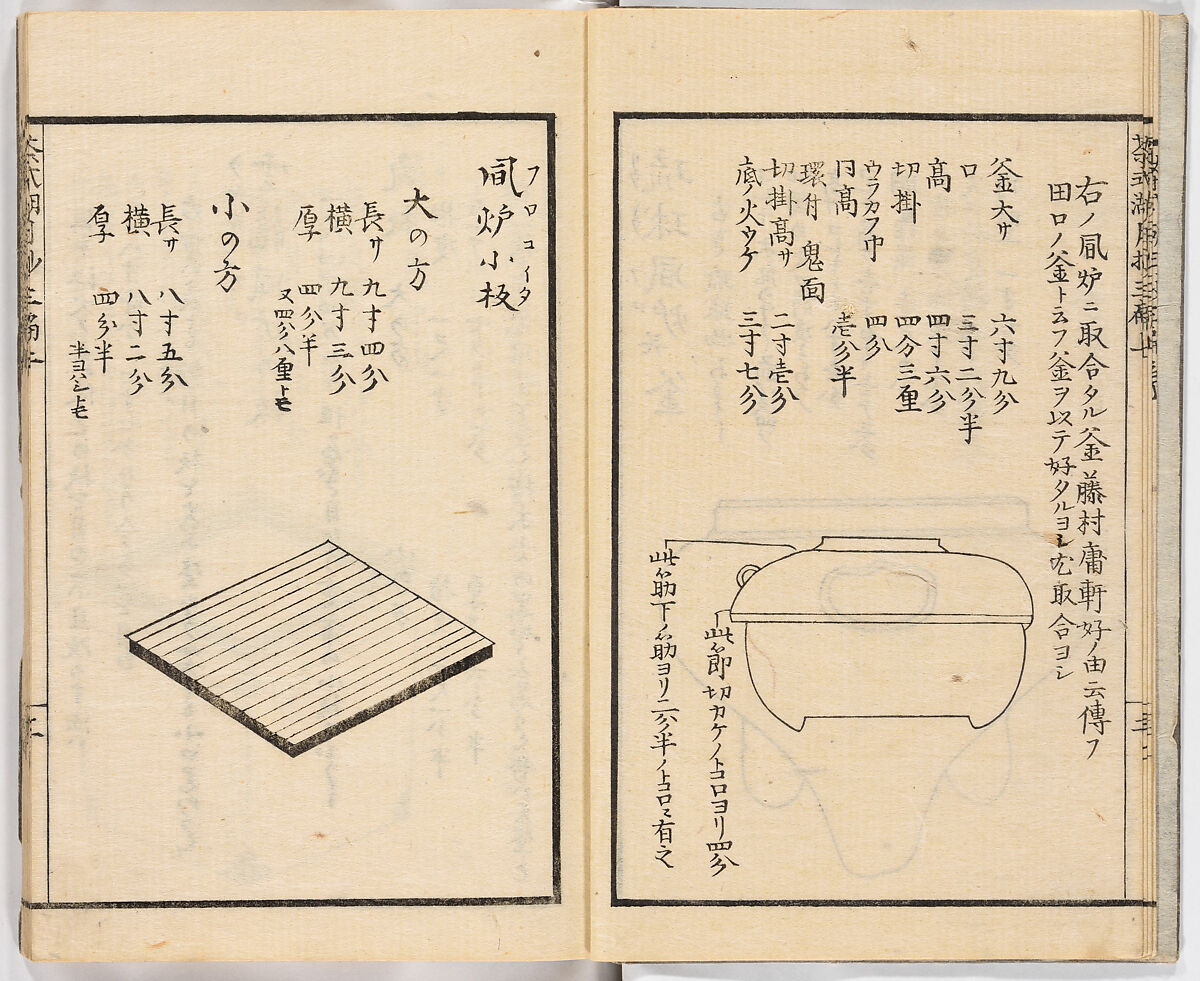 右ノ風炉ニ取合タル釜藤村庸軒好ノ由云傳フ
田口ノ釜ト云フ釜ヲ以テ好タルヨシ尤取合ヨシ
釜大サ 六寸九分
口 三寸二分半
高 四寸六分
切掛 四分三厘
ウラカフ巾 四分
同高 壱分半
環付 鬼面
切掛高サ 二寸壱分
底ノ火ウケ 三寸七分
此節切カケノトコロヨリ四分
此筋下ノ筋ヨリ二分半ノトコロニ有之
風炉小板
フロコイタ
大の方
長サ 九寸四分
横 九寸三分
厚 四分半
又四分八厘トモ
小の方
長サ 八寸五分
横 八寸二分
厚 四分半